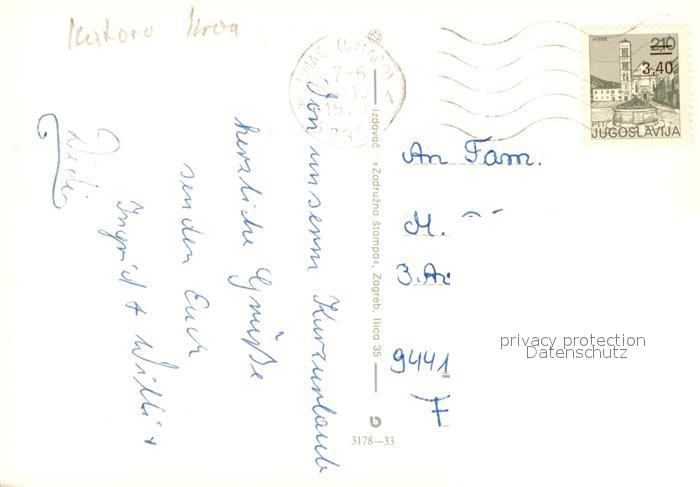 Katoro Kroa
Von unserm Kurzurlaub
herzliche Grüße
senden Euch
Ingrid + Willi +
Izdavač: »Zadružna štampa«, Zagreb, Ilica 35
3178—33
UMAG (UMAGO)
HVAR
2,10
3,40
PTT
JUGOSLAVIJA
An Fam.
M.
3.
9441
privacy protection
Datenschutz